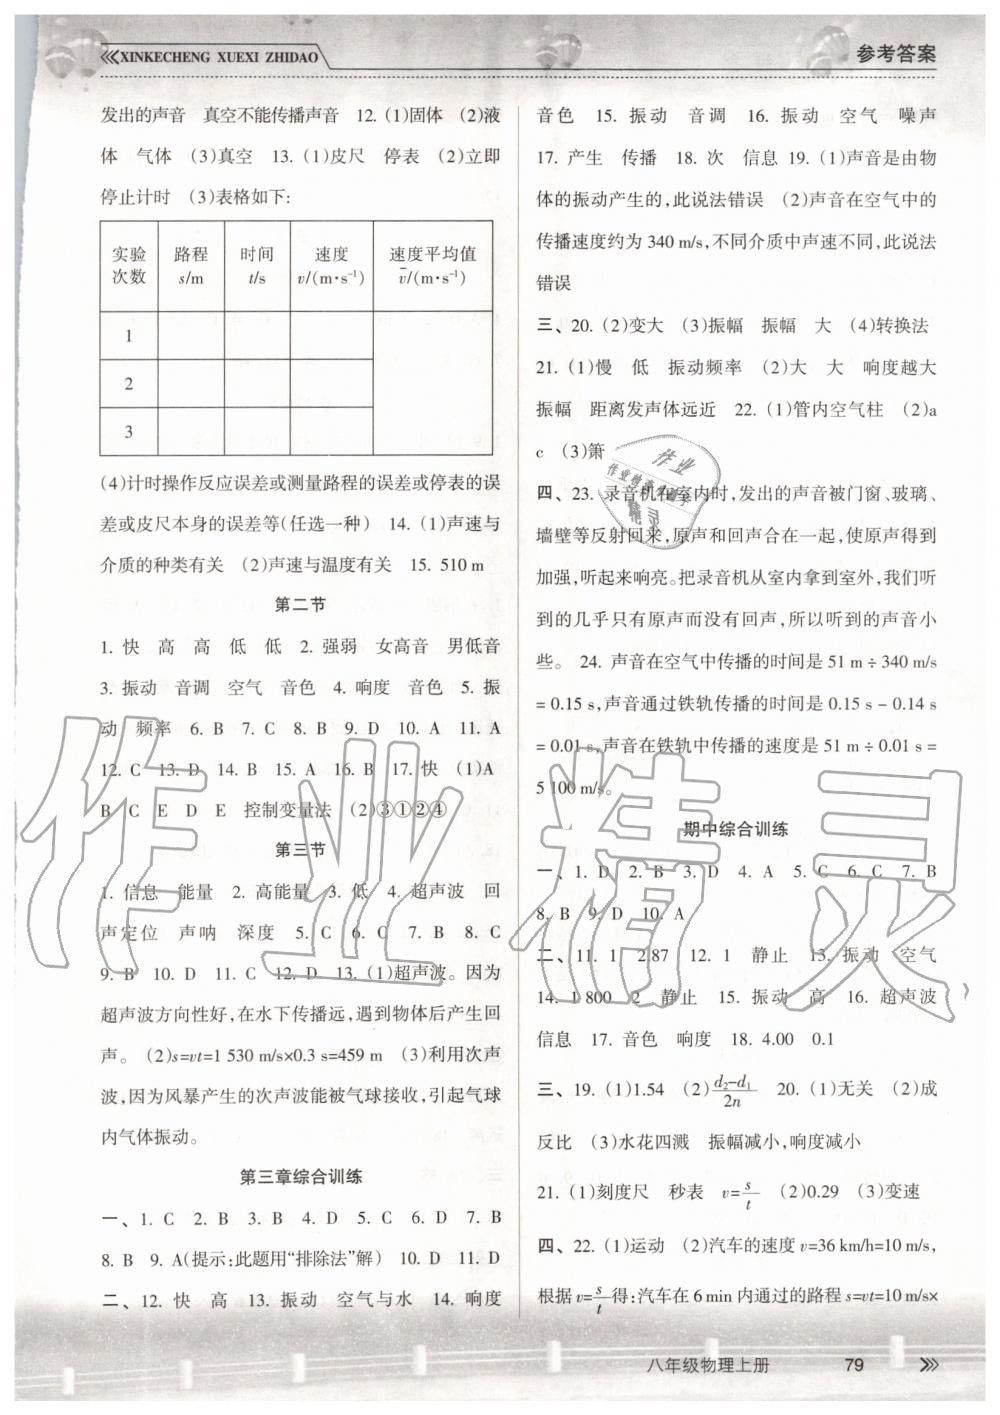 XINKECHENG XUEXI ZHIDAO
参考答案
发出的声音 真空不能传播声音 12. (1)固体 (2)液
体 气体 (3)真空 13. (1)皮尺 停表 (2)立即
停止计时 (3)表格如下:
实验次数 路程 s/m 时间 t/s 速度 v/(m·s⁻¹) 速度平均值 v̄/(m·s⁻¹)
1
2
3
(4)计时操作反应误差或测量路程的误差或停表的误
差或皮尺本身的误差等(任选一种) 14. (1)声速与
介质的种类有关 (2)声速与温度有关 15. 510 m
第二节
1. 快 高 高 低 低 2. 强弱 女高音 男低音
3. 振动 音调 空气 音色 4. 响度 音色 5. 振
动 频率 6. B 7. C 8. B 9. D 10. A 11. A
12. C 13. D 14. B 15. A 16. B 17. 快 (1)A
B C E D E 控制变量法 (2)③①②④
第三节
1. 信息 能量 2. 高能量 3. 低 4. 超声波 回
声定位 声呐 深度 5. C 6. C 7. B 8. C
9. B 10. D 11. C 12. D 13. (1)超声波。因为
超声波方向性好,在水下传播远,遇到物体后产生回
声。 (2)s=vt=1 530 m/s×0.3 s=459 m (3)利用次声
波,因为风暴产生的次声波能被气球接收,引起气球
内气体振动。
第三章综合训练
一、1. C 2. B 3. B 4. D 5. C 6. D 7. B
8. B 9. A(提示:此题用“排除法”解) 10. D 11. D
二、12. 快 高 13. 振动 空气与水 14. 响度
音色 15. 振动 音调 16. 振动 空气 噪声
17. 产生 传播 18. 次 信息 19. (1)声音是由物
体的振动产生的,此说法错误 (2)声音在空气中的
传播速度约为 340 m/s,不同介质中声速不同,此说法
错误
三、20. (2)变大 (3)振幅 振幅 大 (4)转换法
21. (1)慢 低 振动频率 (2)大 大 响度越大
振幅 距离发声体远近 22. (1)管内空气柱 (2)a
c (3)箫
四、23. 录音机在室内时,发出的声音被门窗、玻璃、
墙壁等反射回来,原声和回声混合在一起,使原声得到
加强,听起来响亮。把录音机从室内拿到室外,我们听
到的几乎只有原声而没有回声,所以听到的声音小
些。 24. 声音在空气中传播的时间是 51 m÷340 m/s
= 0.15 s,声音通过铁轨传播的时间是 0.15 s - 0.14 s
= 0.01 s,声音在铁轨中传播的速度是 51 m÷0.01 s =
5 100 m/s。
期中综合训练
一、1. D 2. B 3. D 4. A 5. C 6. C 7. B
8. B 9. D 10. A
二、11. 1 2.87 12. 1 静止 13. 振动 空气
14. 1 800 2 静止 15. 振动 高 16. 超声波
信息 17. 音色 响度 18. 4.00 0.1
三、19. (1)1.54 (2)(d₂-d₁)/2n 20. (1)无关 (2)成
反比 (3)水花四溅 振幅减小,响度减小
21. (1)刻度尺 秒表 v=s/t (2)0.29 (3)变速
四、22. (1)运动 (2)汽车的速度 v=36 km/h=10 m/s,
根据 v=s/t得:汽车在 6 min 内通过的路程 s=vt=10 m/s×
八年级物理上册 79
作业精灵